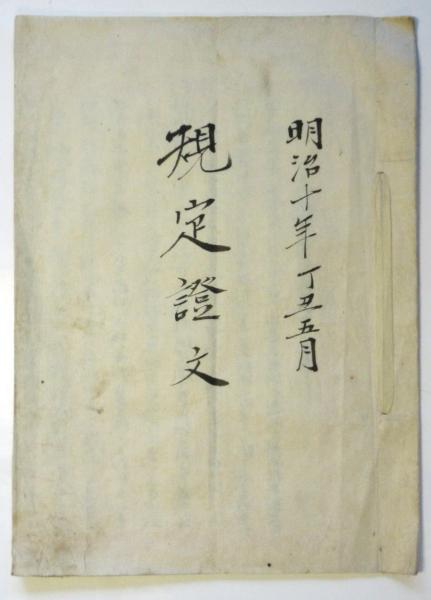 明治十年丁丑五月
規定證文